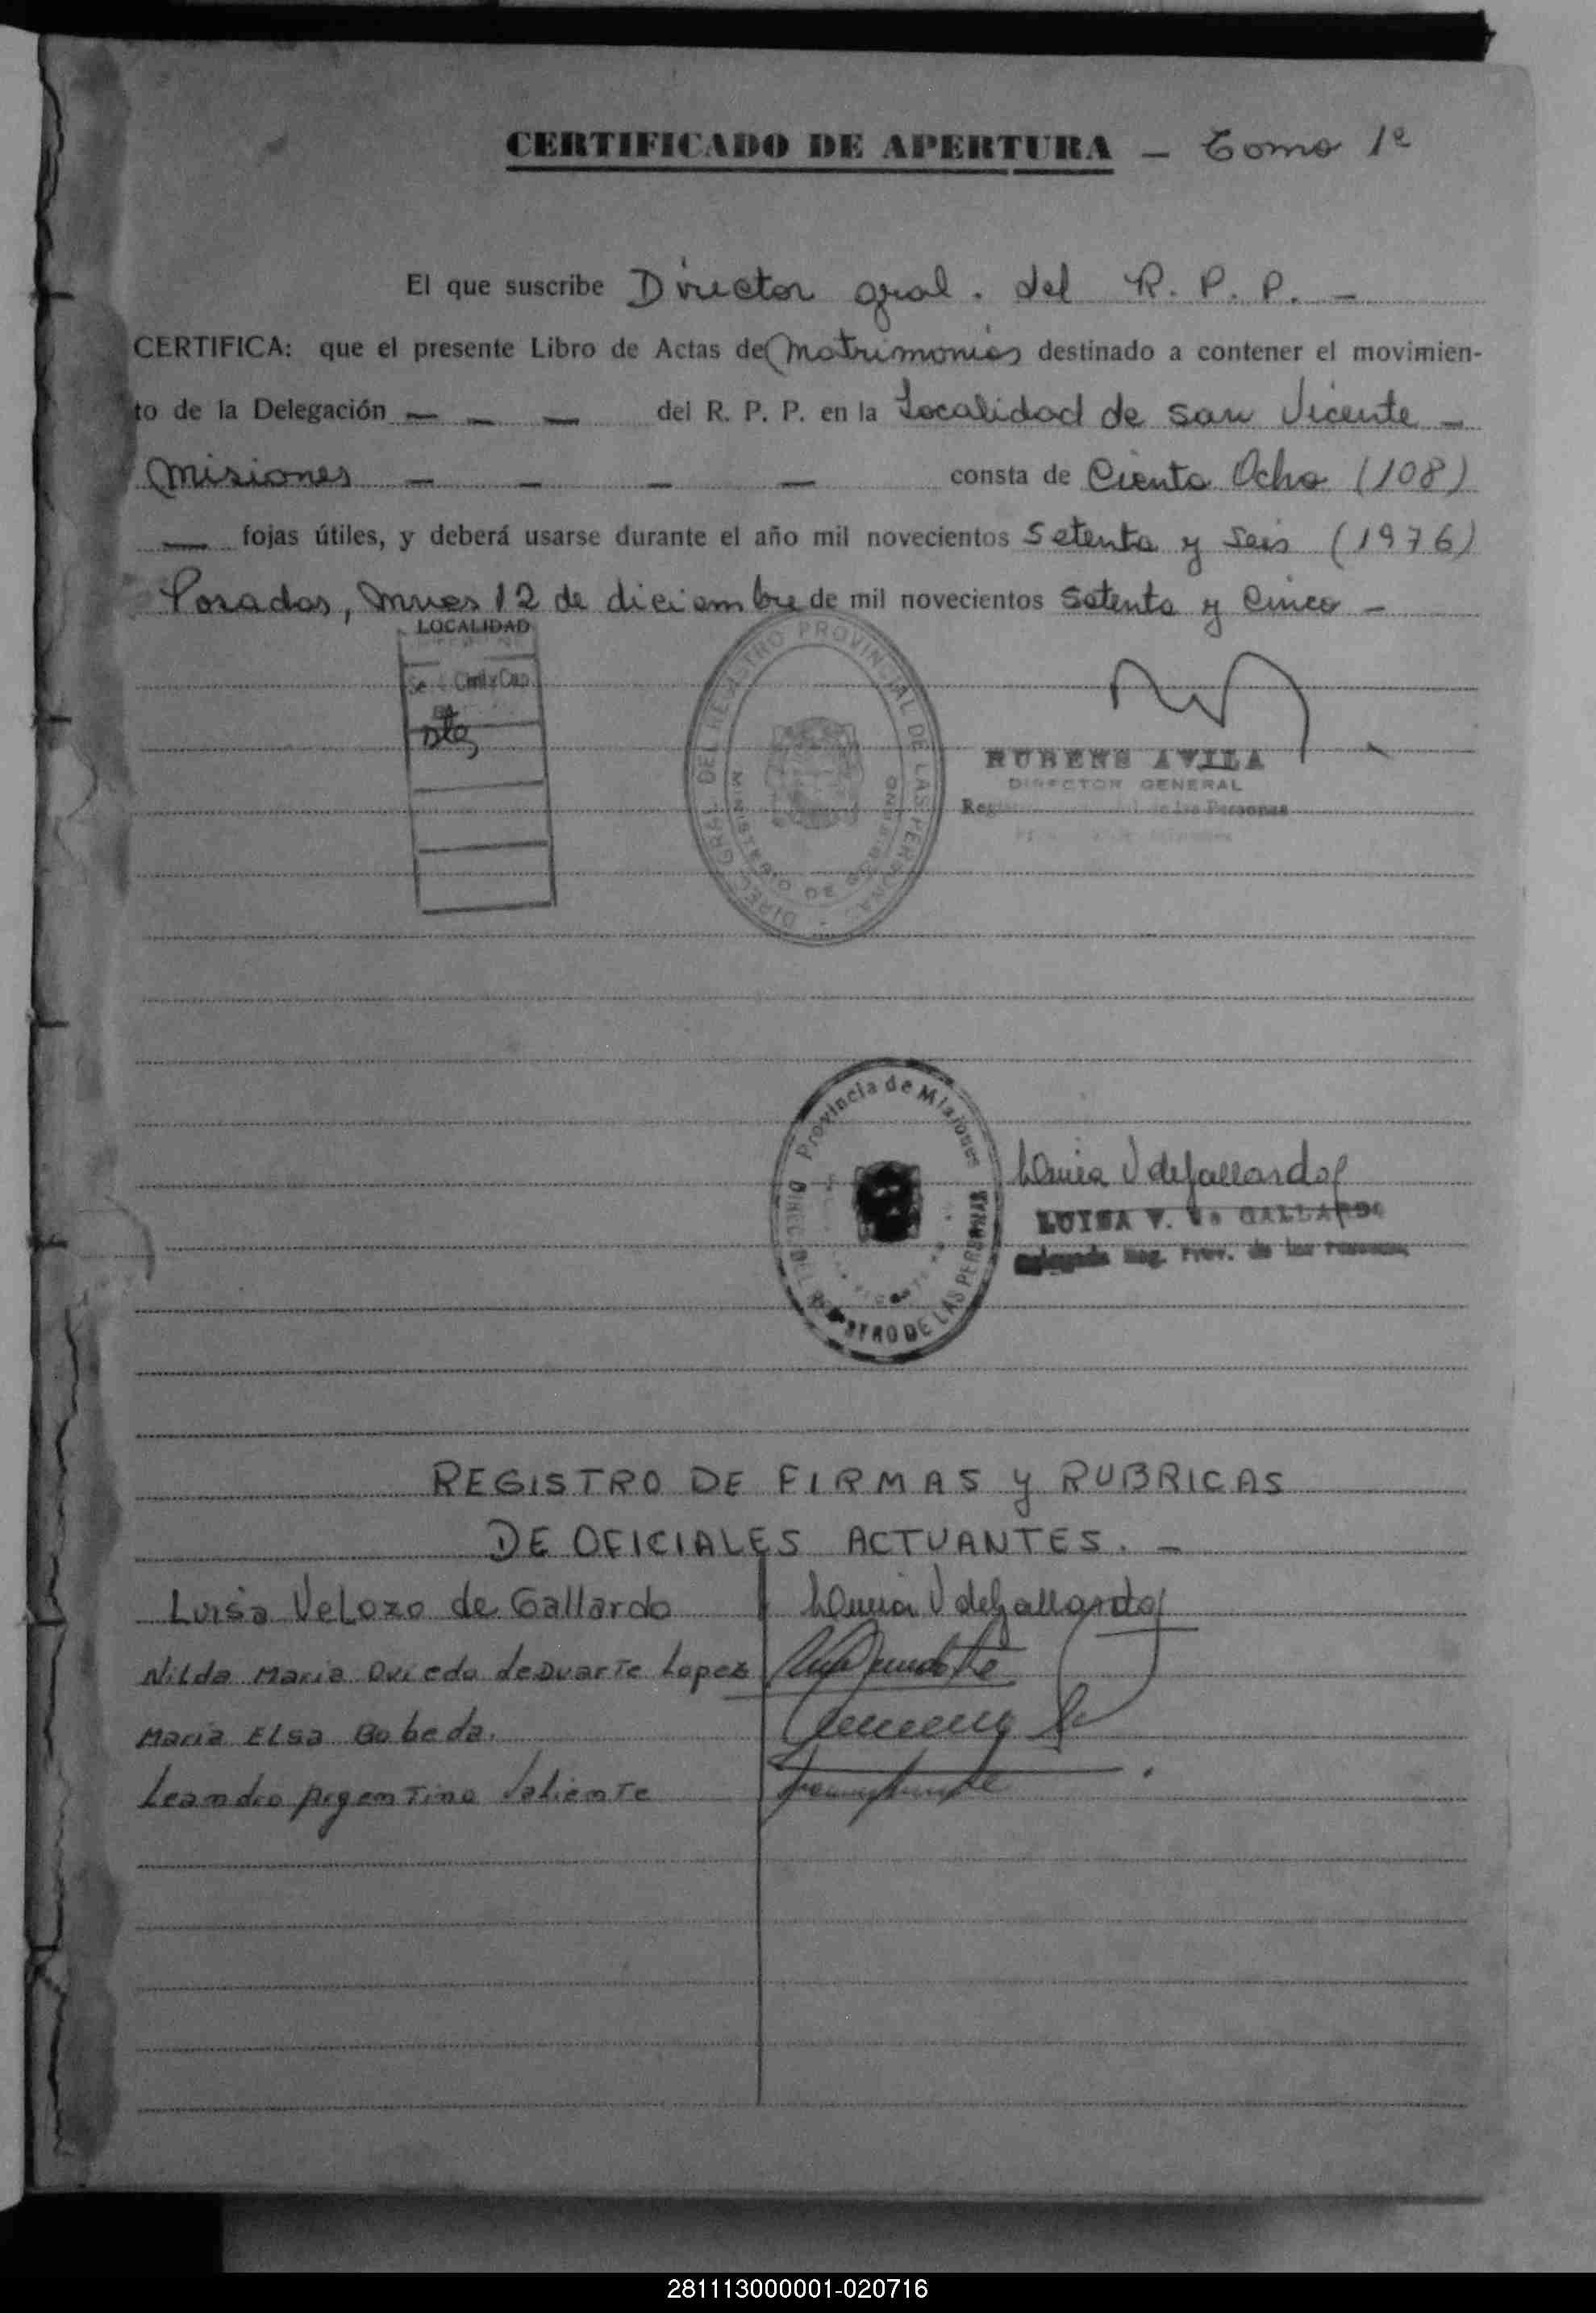 CERTIFICADO DE APERTURA - Tomo 1º
El que suscribe Director gral. del R. P. P. -
CERTIFICA: que el presente Libro de Actas de Matrimonios destinado a contener el movimien-
to de la Delegación - - - del R. P. P. en la Localidad de San Vicente -
Misiones - - - - consta de Ciento Ocho (108)
- fojas útiles, y deberá usarse durante el año mil novecientos Setenta y Seis (1976)
Posadas, Mnes 12 de diciembre de mil novecientos Setenta y Cinco -
LOCALIDAD
DIREC. GRAL. DEL REGISTRO PROVINCIAL DE LAS PERSONAS
MINISTERIO DE GOBIERNO
RUBENS AVILA
DIRECTOR GENERAL
de las Personas
Provincia de Misiones
DIREC. DEL REGISTRO DE LAS PERSONAS
Luisa V de Gallardo
LUISA V. de GALLARDO
Delegada Reg. Prov. de las Personas
REGISTRO DE FIRMAS y RUBRICAS
DE OFICIALES ACTUANTES. -
Luisa Velozo de Gallardo Luisa V de Gallardo
Nilda Maria Oviedo de Duarte Lopez
Maria Elsa Bobeda.
Leandro Argentino Valiente
281113000001-020716